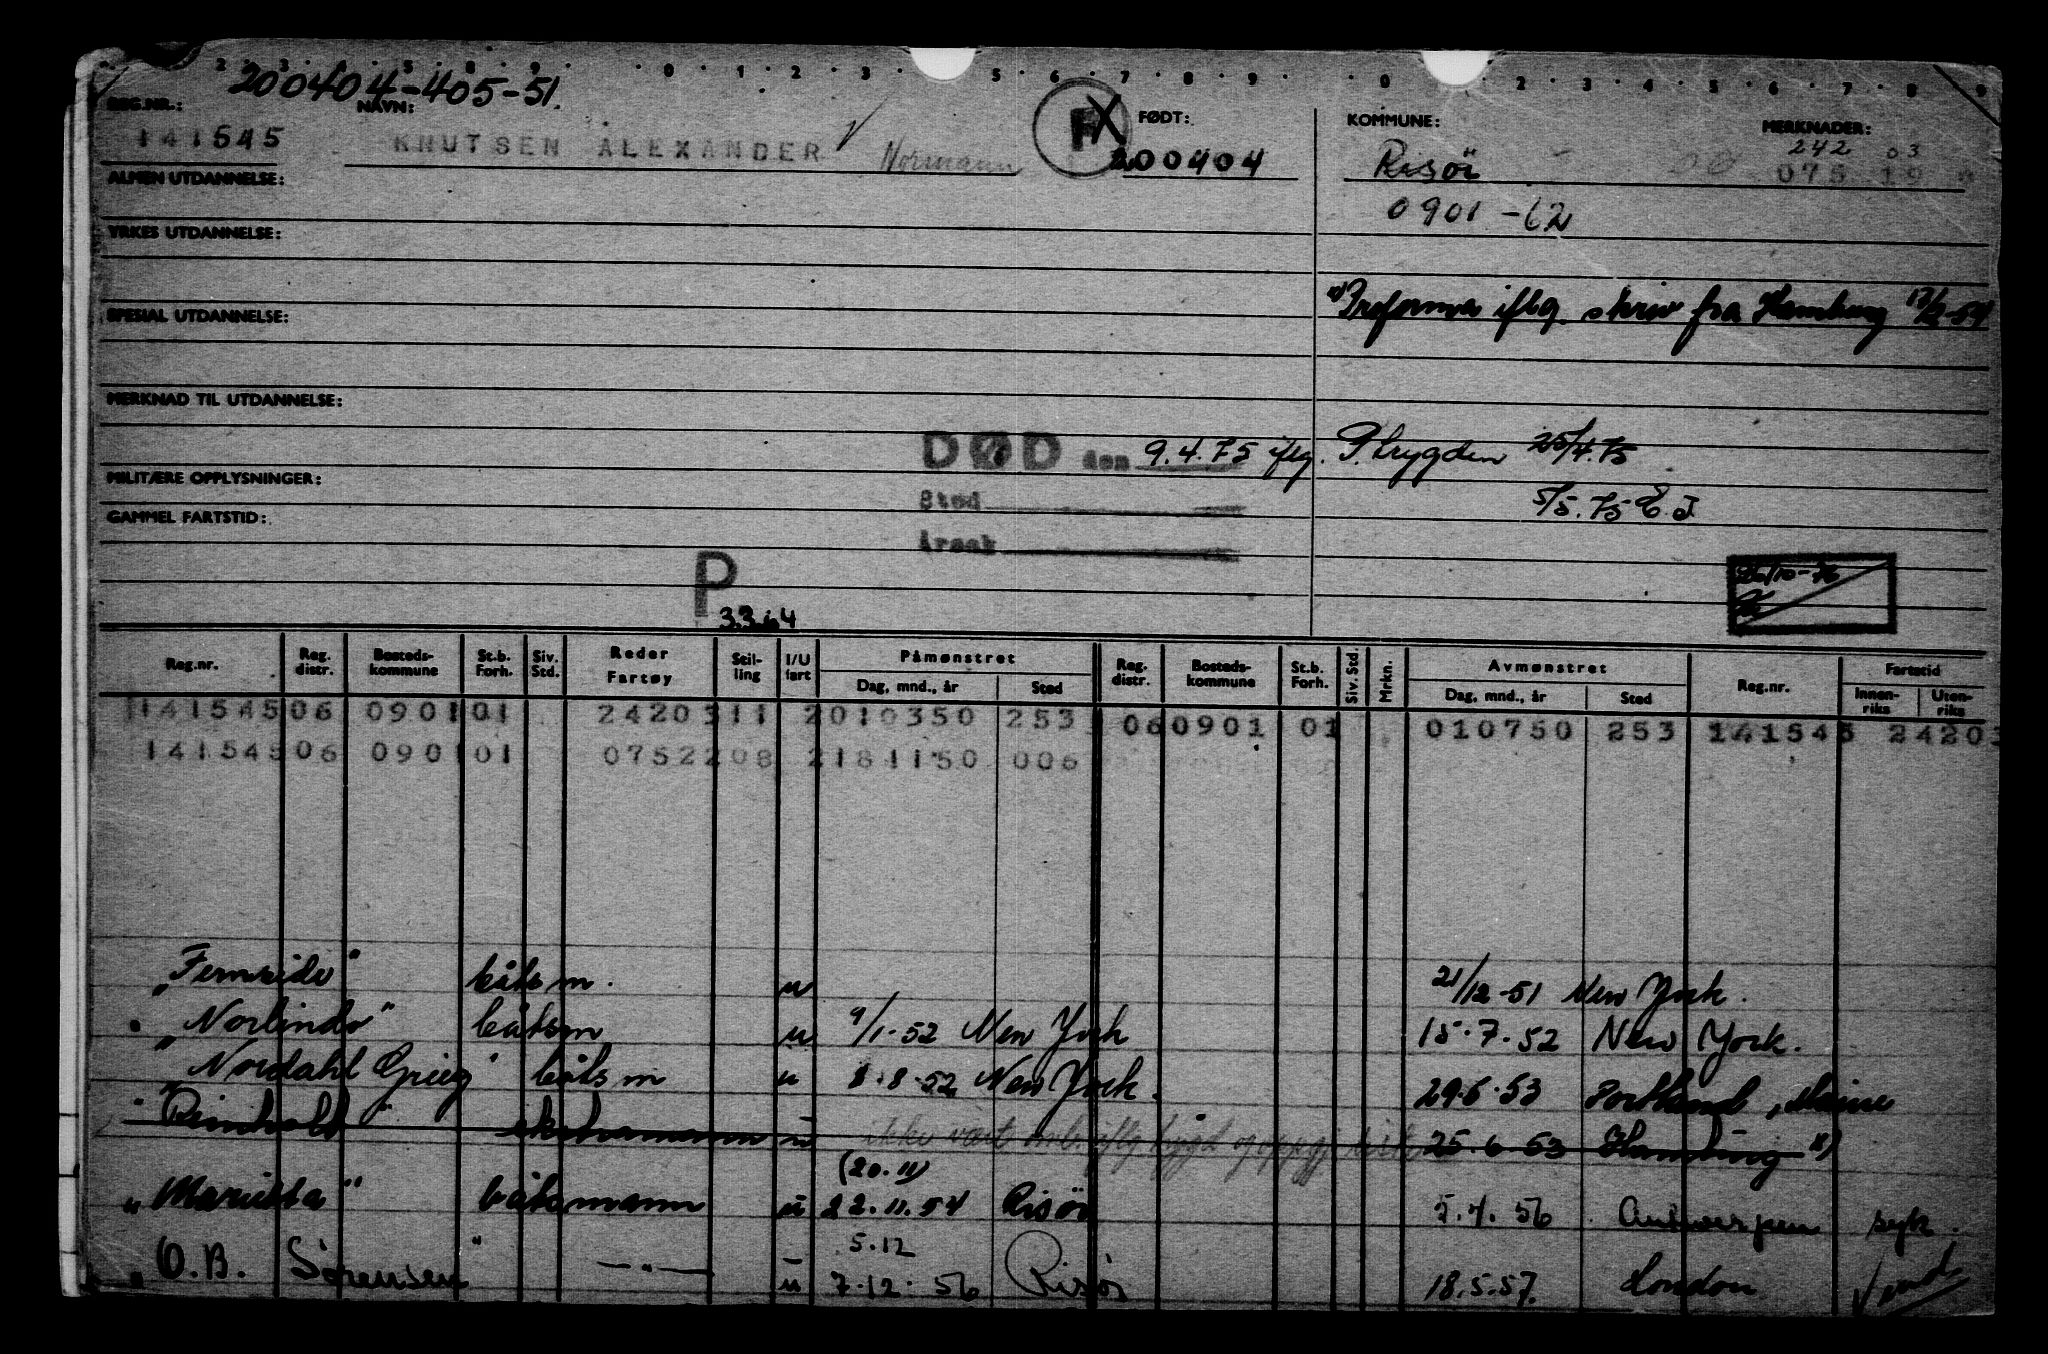 200404-405-51.
REG.NR.: NAVN: FØDT: KOMMUNE: MERKNADER:
141545 KNUTSEN ALEXANDER Normann F 200404 Risör 242 03
075 19
ALMEN UTDANNELSE:
0901 -62
YRKES UTDANNELSE:
x) Proforma iflg. skriv fra Hamburg 17/2-54
SPESIAL UTDANNELSE:
MERKNAD TIL UTDANNELSE:
DØD den 9.4.75 iflg. P.trygden 25/4.75
MILITÆRE OPPLYSNINGER:
Sted 5/5.75 E.J
GAMMEL FARTSTID:
Årsak
P
3364
26/10-76
Reg.nr. Reg. distr. Bosteds-kommune St.b. Forh. Siv. Std. Reder Fartøy Stil-ling I/U fart Påmønstret Dag, mnd., år Sted Reg. distr. Bosteds-kommune St.b. Forh. Siv. Std. Mrkn. Avmønstret Dag, mnd., år Sted Reg.nr. Fartstid Innen-riks Uten-riks
141545 06 0901 01 24203 11 2 010350 253 06 0901 01 010750 253 141545 24203
141545 06 0901 01 0752208 2 181150 006
båtsm. u 21/12-51 New York.
"Norlindo" båtsm u 9/1-52 New York 15.7.52 New York.
"Nordahl Grieg" båtsm u 8.52 New York. 29.6.53 Portland, Maine
"Reinhold" u ikke vært 25.6 53 Hamburg x)
(20.11)
"Marietta" båtsmann u 22.11.54 Risör 5.4.56 Antwerpen syk.
5.12
"O.B. Sørensen" —"— u 7.12.56 Risör 18.5.57. London